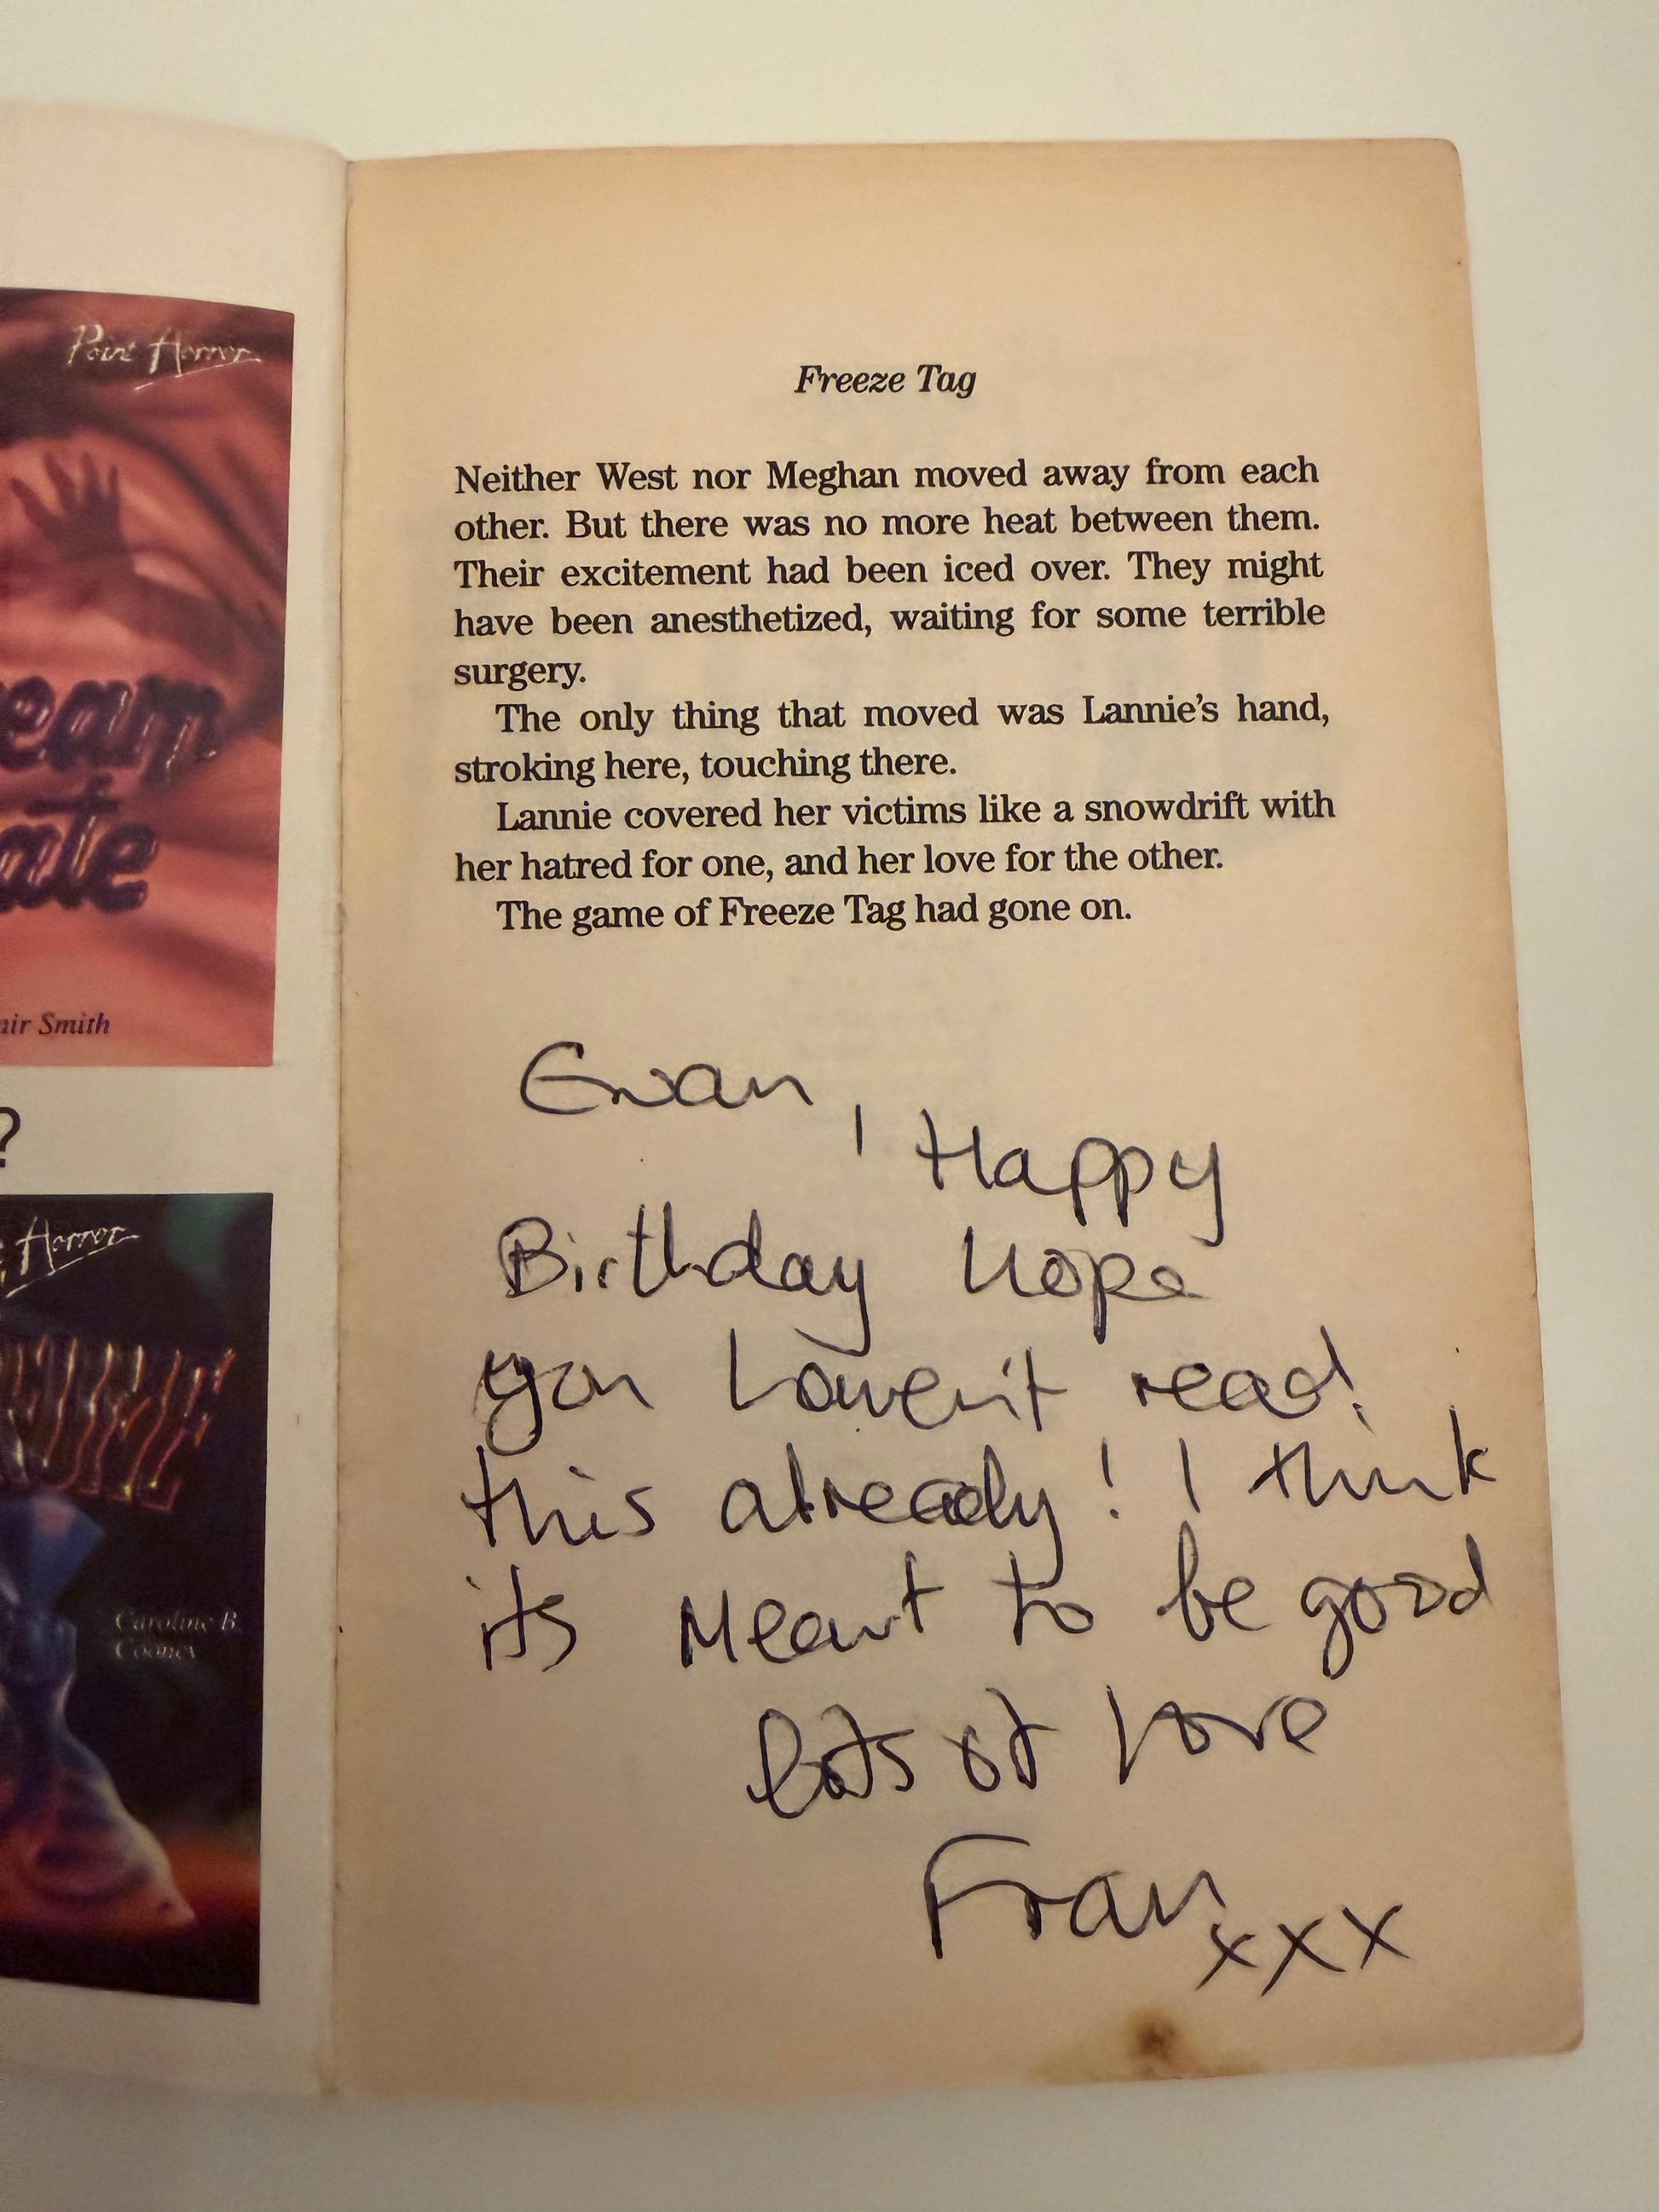 Point Horror
eam
ate
air Smith
?
Horror
Caroline B.
Cooney
Freeze Tag
Neither West nor Meghan moved away from each
other. But there was no more heat between them.
Their excitement had been iced over. They might
have been anesthetized, waiting for some terrible
surgery.
The only thing that moved was Lannie's hand,
stroking here, touching there.
Lannie covered her victims like a snowdrift with
her hatred for one, and her love for the other.
The game of Freeze Tag had gone on.
Ewan,
Happy
Birthday hope
you haven't read
this already! I think
its Meant to be good
lots of love
Fran
xxx